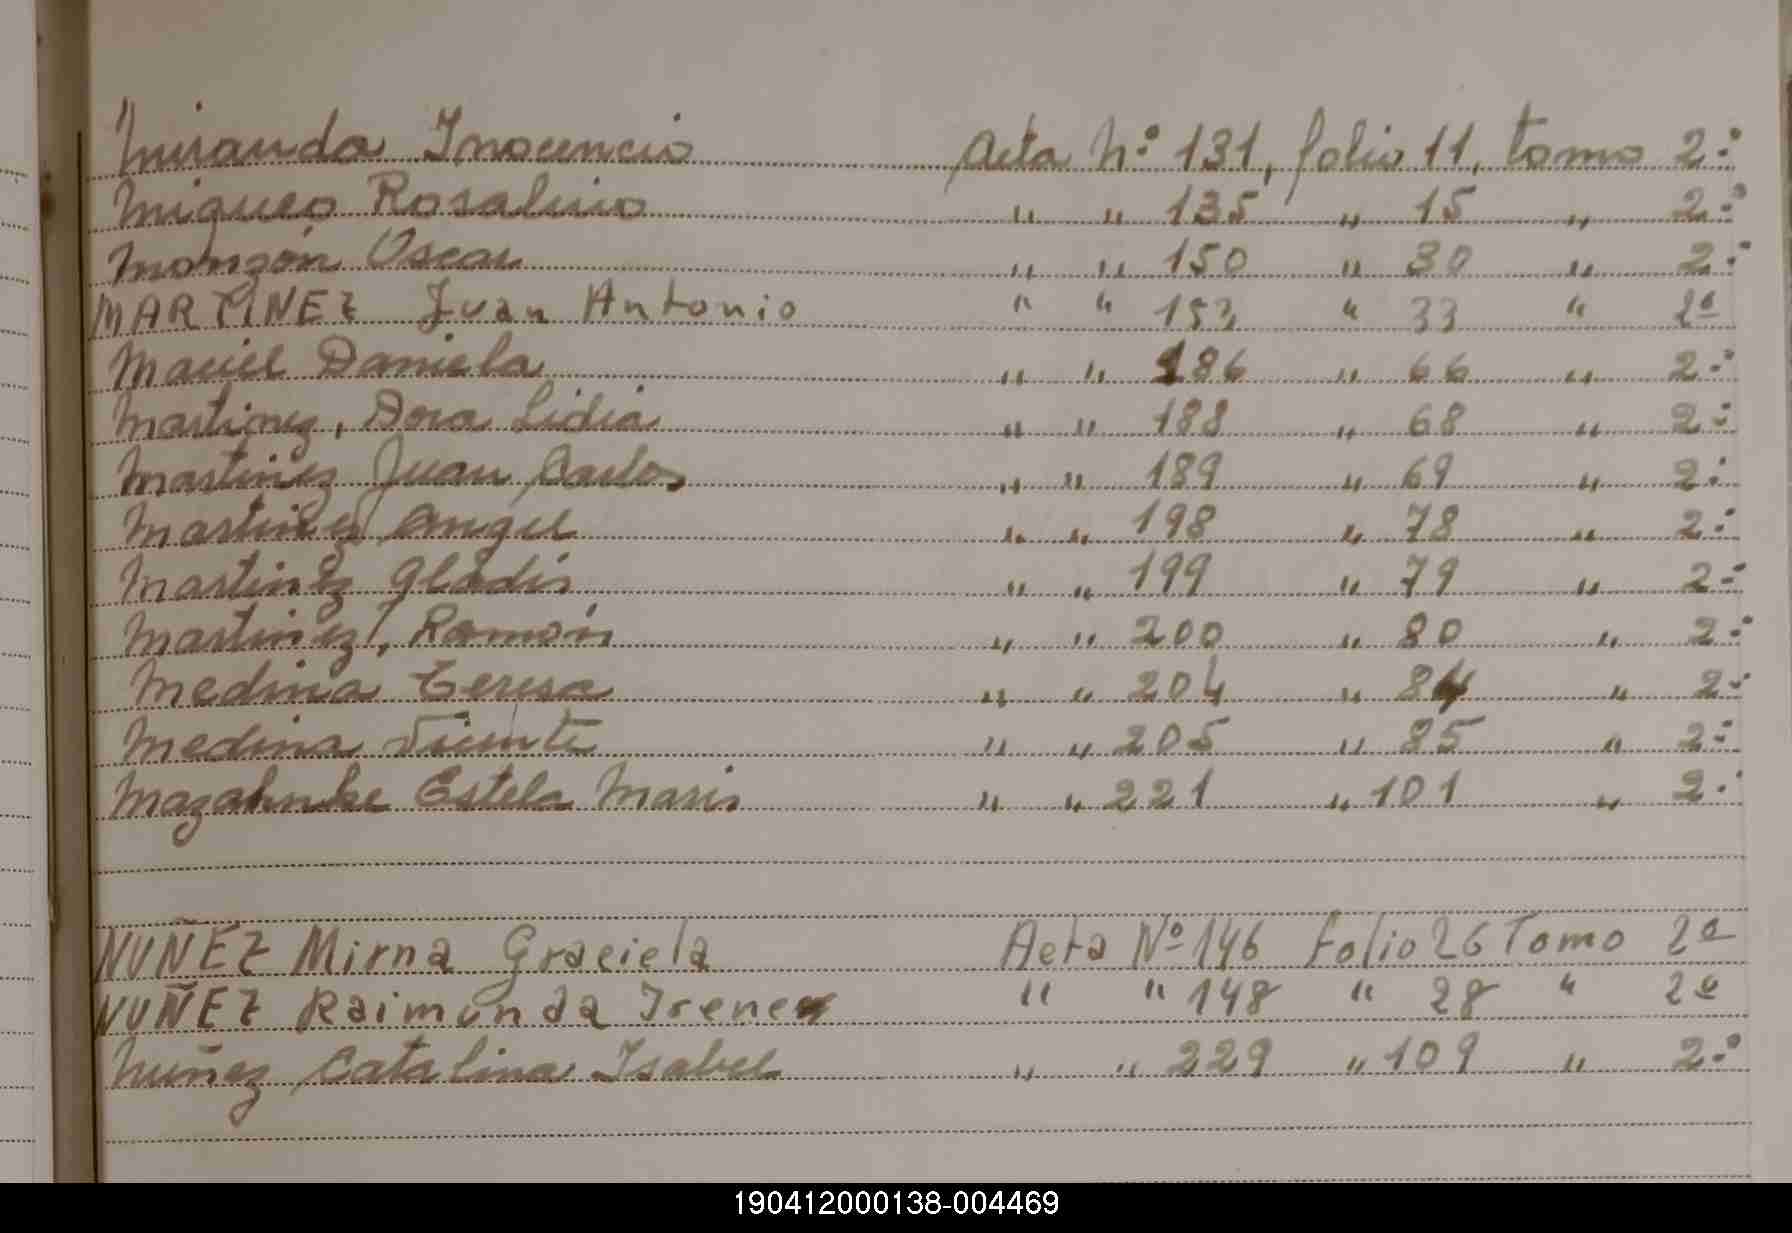 Miranda Inocencio Acta Nº 131, folio 11, tomo 2º
Miqueo Rosalino " " 135 " 15 " 2º
Monzón Oscar " " 150 " 30 " 2º
MARTINEZ Juan Antonio " " 153 " 33 " 2º
Maciel Daniela " " 186 " 66 " 2º
Martinez, Dora Lidia " " 188 " 68 " 2º
Martinez Juan Carlos " " 189 " 69 " 2º
Martinez Angel " " 198 " 78 " 2º
Martinez Gladis " " 199 " 79 " 2º
Martinez, Ramón " " 200 " 80 " 2º
Medina Teresa " " 204 " 84 " 2º
Medina Vicente " " 205 " 85 " 2º
Estela Maris " " 221 " 101 " 2º
NUÑEZ Mirna Graciela Acta Nº 146 folio 26 Tomo 2º
NUÑEZ Raimunda Irene " " 148 " 28 " 2º
Nuñez Catalina Isabel " " 229 " 109 " 2º
190412000138-004469